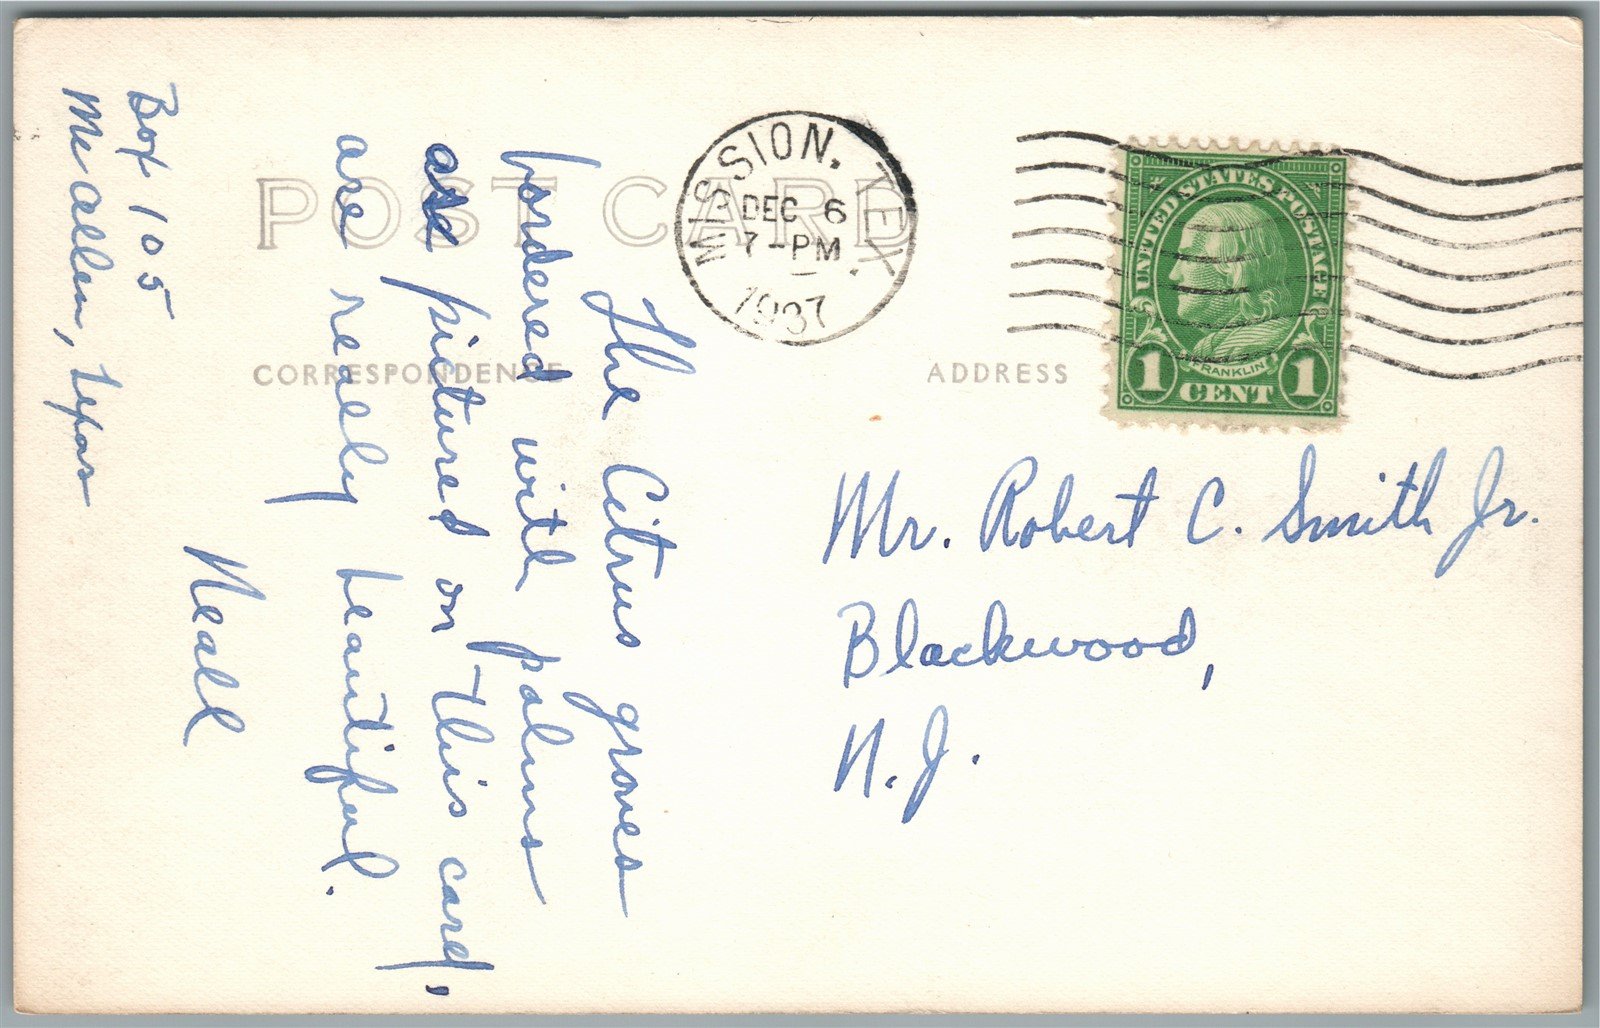 POST CARD
CORRESPONDENCE
ADDRESS
MISSION, TEX.
DEC 6
7-PM
1937
UNITED STATES POSTAGE
FRANKLIN
1 CENT 1
Mr. Robert C. Smith Jr.
Blackwood,
N. J.
The Citrus groves
bordered with palms
as pictured on this card,
are really beautiful.
Neall
Box 105
McAllen, Texas